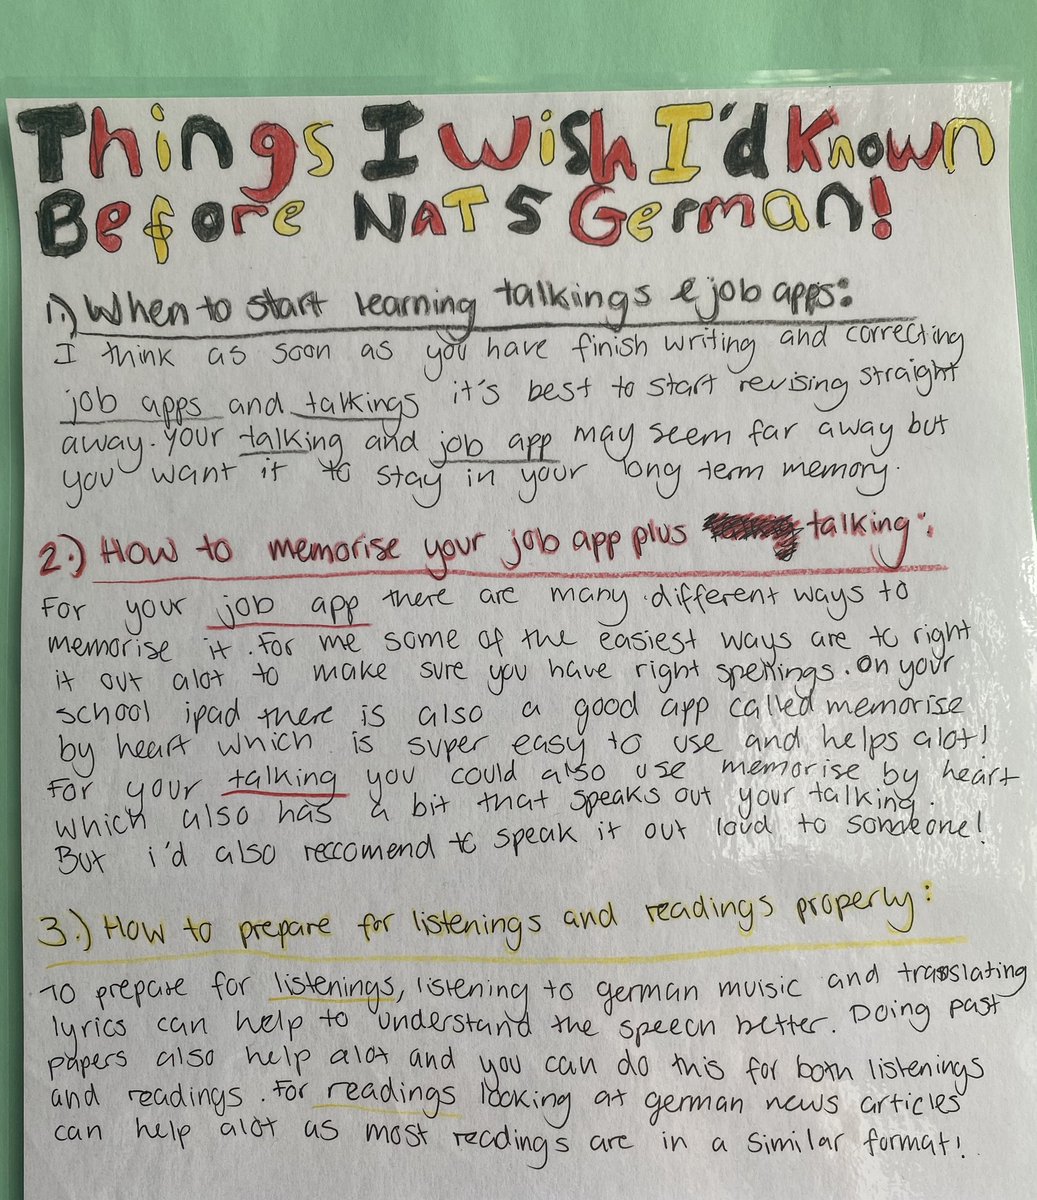 Things I Wish I'd Known
Before NAT 5 German!
1.) When to start learning talkings & job apps:
I think as soon as you have finish writing and correcting
job apps and talkings it's best to start revising straight
away. Your talking and job app may seem far away but
you want it to stay in your long term memory.
2.) How to memorise your job app plus talking:
For your job app there are many different ways to
memorise it. For me some of the easiest ways are to right
it out alot to make sure you have right spellings. On your
school ipad there is also a good app called memorise
by heart which is super easy to use and helps alot!
For your talking you could also use memorise by heart
which also has a bit that speaks out your talking.
But i'd also reccomend to speak it out loud to someone!
3.) How to prepare for listenings and readings properly:
To prepare for listenings, listening to german muisic and translating
lyrics can help to understand the speech better. Doing past
papers also help alot and you can do this for both listenings
and readings. For readings looking at german news articles
can help alot as most readings are in a similar format!